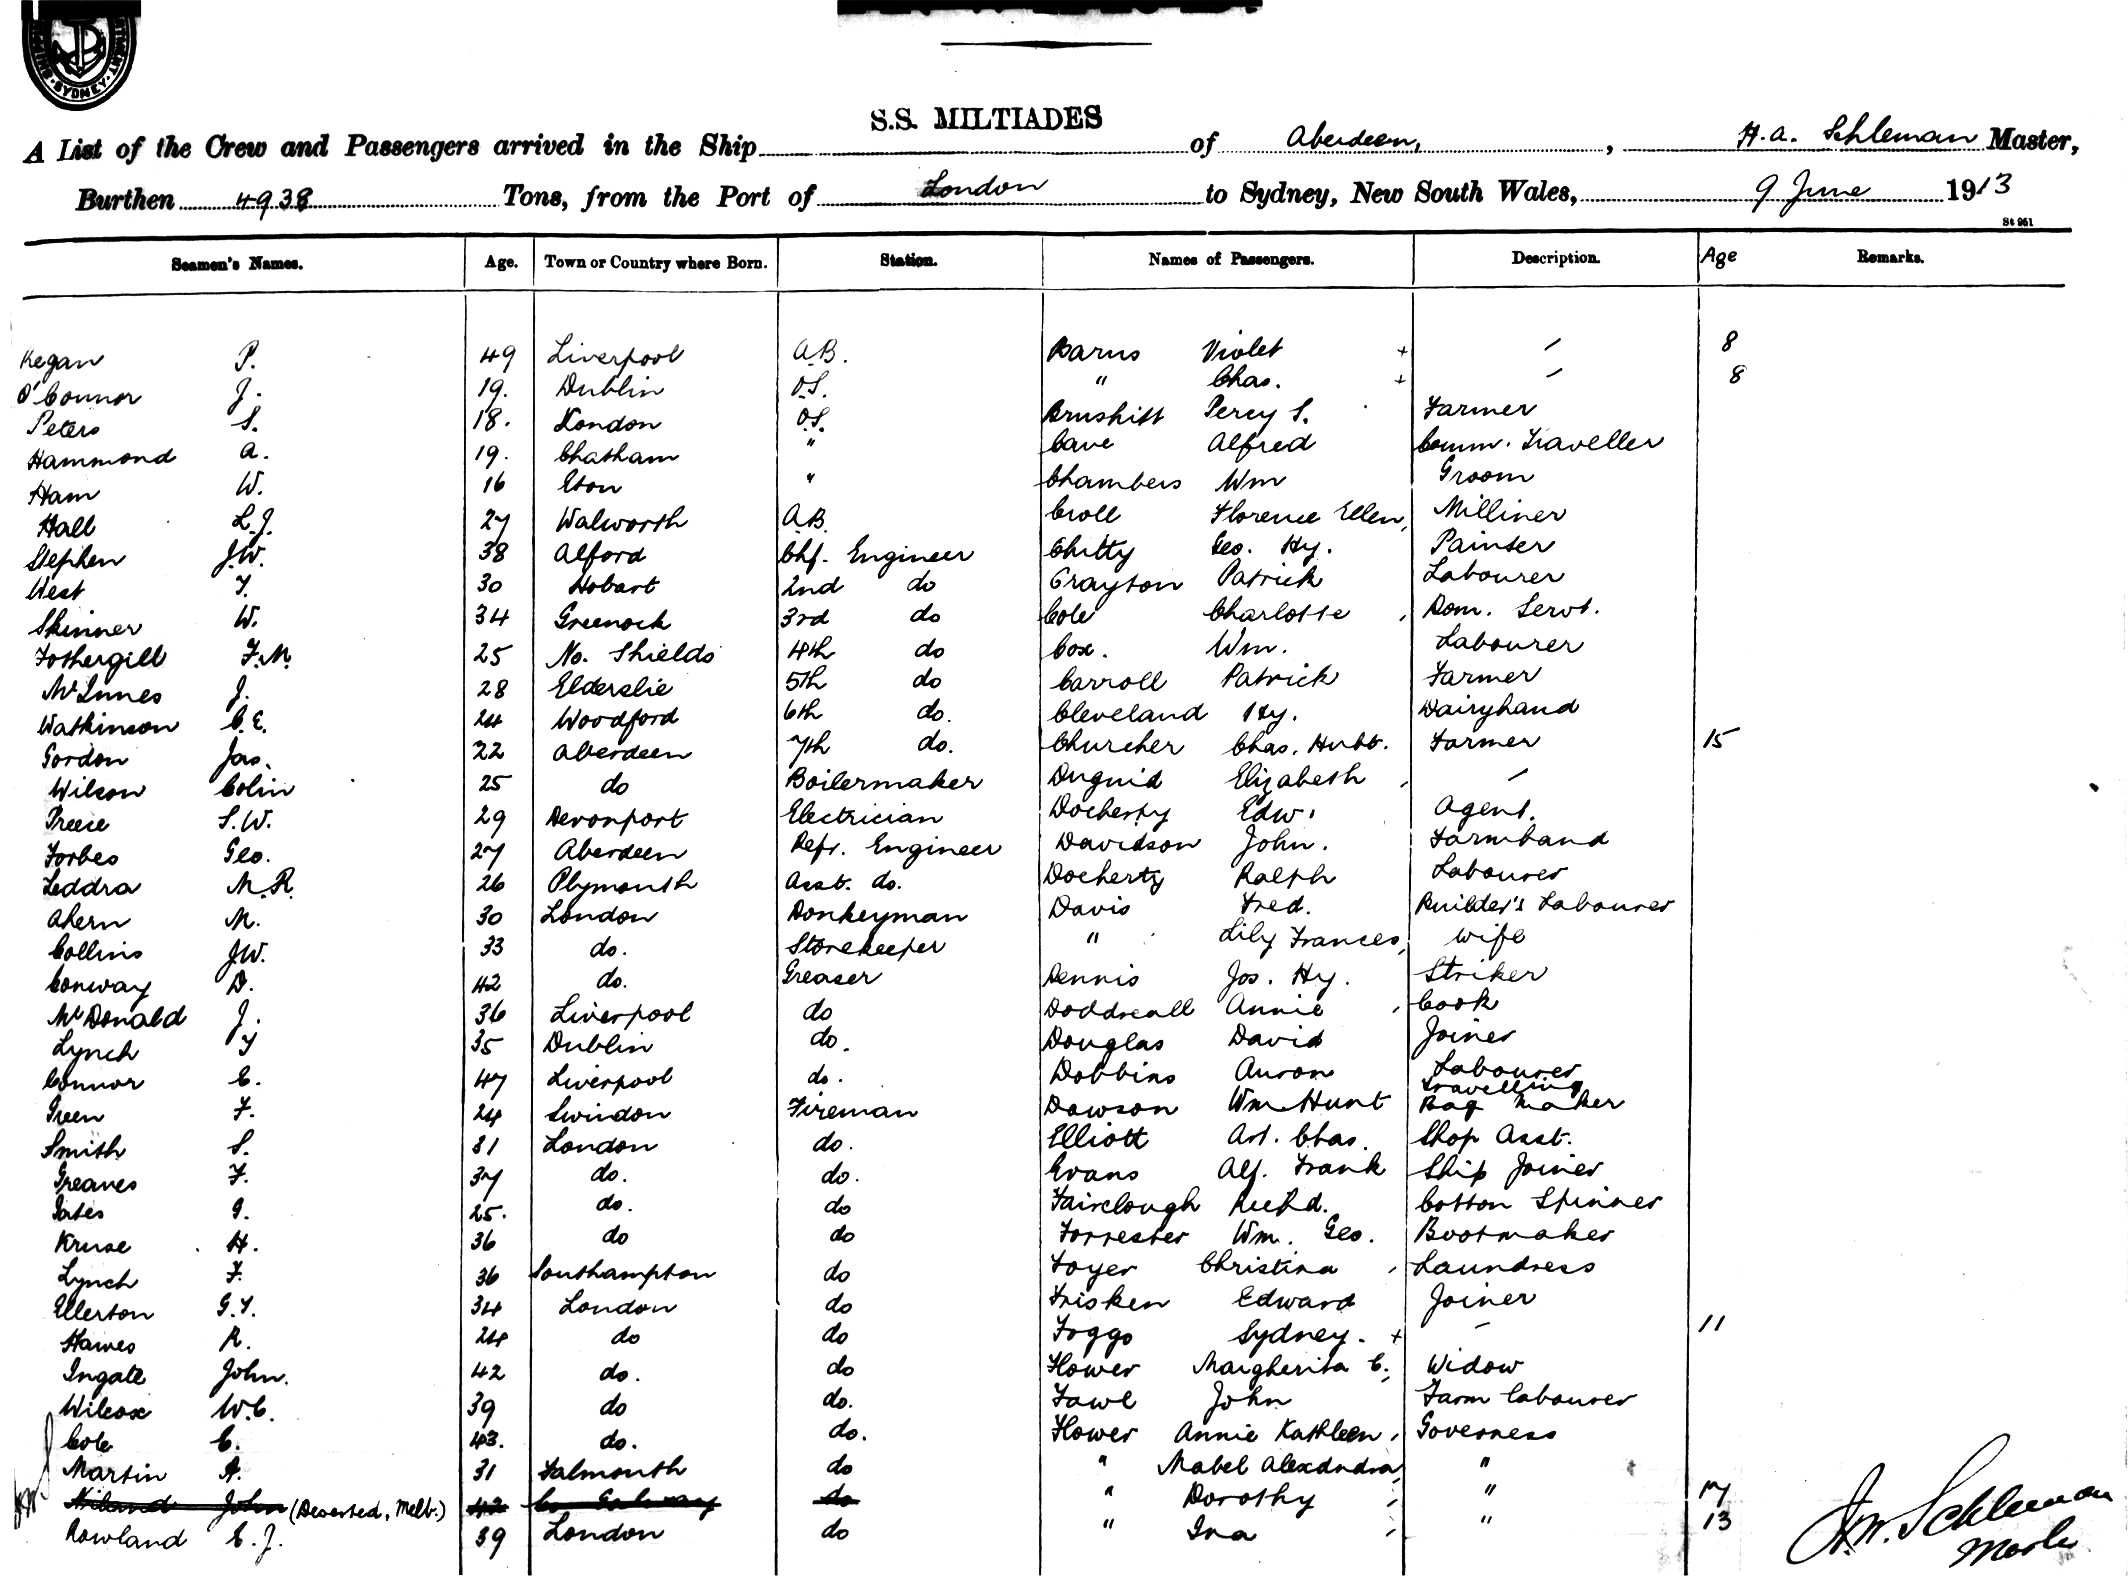 SYDNEY
S.S. MILTIADES
A List of the Crew and Passengers arrived in the Ship of Aberdeen, , H.A. Schleman Master,
Burthen 4938 Tons, from the Port of London to Sydney, New South Wales, 9 June 1913
St 961
Seamen's Names. Age. Town or Country where Born. Station. Names of Passengers. Description. Age Remarks.
Kegan P. 49 Liverpool A.B. Barns Violet + / 8
O'Connor J. 19. Dublin O.S. " Chas. + / 8
Peters S. 18. London O.S. Brushitt Percy S. Farmer
Hammond A. 19. Chatham " Cave Alfred Comm. Traveller
Ham W. 16 Eton " Chambers Wm Groom
Hall L.J. 27 Walworth A.B. Croll Florence Ellen, Milliner
Stephen J.W. 38 Alford Chf. Engineer Chitty Geo. Hy. Painter
West T. 30 Hobart 2nd do Crayton Patrick Labourer
Skinner W. 34 Greenock 3rd do Cole Charlotte , Dom. Servt.
Fothergill F.M. 25 No. Shields 4th do Cox. Wm. Labourer
McInnes J. 28 Elderslie 5th do Carroll Patrick Farmer
Watkinson C.E. 24 Woodford 6th do. Cleveland Hy. Dairyhand
Gordon Jas. 22 Aberdeen 7th do. Churcher Chas. Hubt. Farmer 15
Wilson Colin 25 do Boilermaker Duguid Elizabeth , /
Preece S.W. 29 Devonport Electrician Docherty Edw. Agent.
Forbes Geo. 27 Aberdeen Refr. Engineer Davidson John. Farmhand
Leddra M.R. 26 Plymouth Asst. do. Docherty Ralph Labourer
Ahern M. 30 London Donkeyman Davis Fred. Builder's Labourer
Collins J.W. 33 do. Storekeeper " Lily Frances, wife
Conway D. 42 do. Greaser Dennis Jos. Hy. Striker
McDonald J. 36 Liverpool do Doddreall Annie , Cook
Lynch T 35 Dublin do. Douglas David Joiner
Connor C. 47 Liverpool do. Dobbins Auron Labourer
Green F. 24 Swindon Fireman Dawson Wm Hunt Travelling Bag Maker
Smith S. 31 London do. Elliott Art. Chas. Shop Asst.
Greaves F. 37 do. do. Evans Alf. Frank Ship Joiner
Yates G. 25. do. do Fairclough Richd. Cotton Spinner
Kruse H. 36 do do Forrester Wm. Geo. Bootmaker
Lynch F. 36 Southampton do Foyer Christina , Laundress
Ellerton G.T. 34 London do Frisken Edward Joiner
Hawes R. 24 do do Foggo Sydney. + - 11
Ingate John. 42 do. do Flower Margherita C., Widow
Wilcox W.C. 39 do do. Fawl John Farm labourer
Cole C. 43. do. do. Flower Annie Kathleen, Governess
Martin A. 31 Falmouth do " Mabel Alexandra, "
Niland John (Deserted, Melb.) 42 Co. Galway do " Dorothy , " 17
Rowland C.J. 39 London do " Ina , " 13
H.W. Schleman
Master